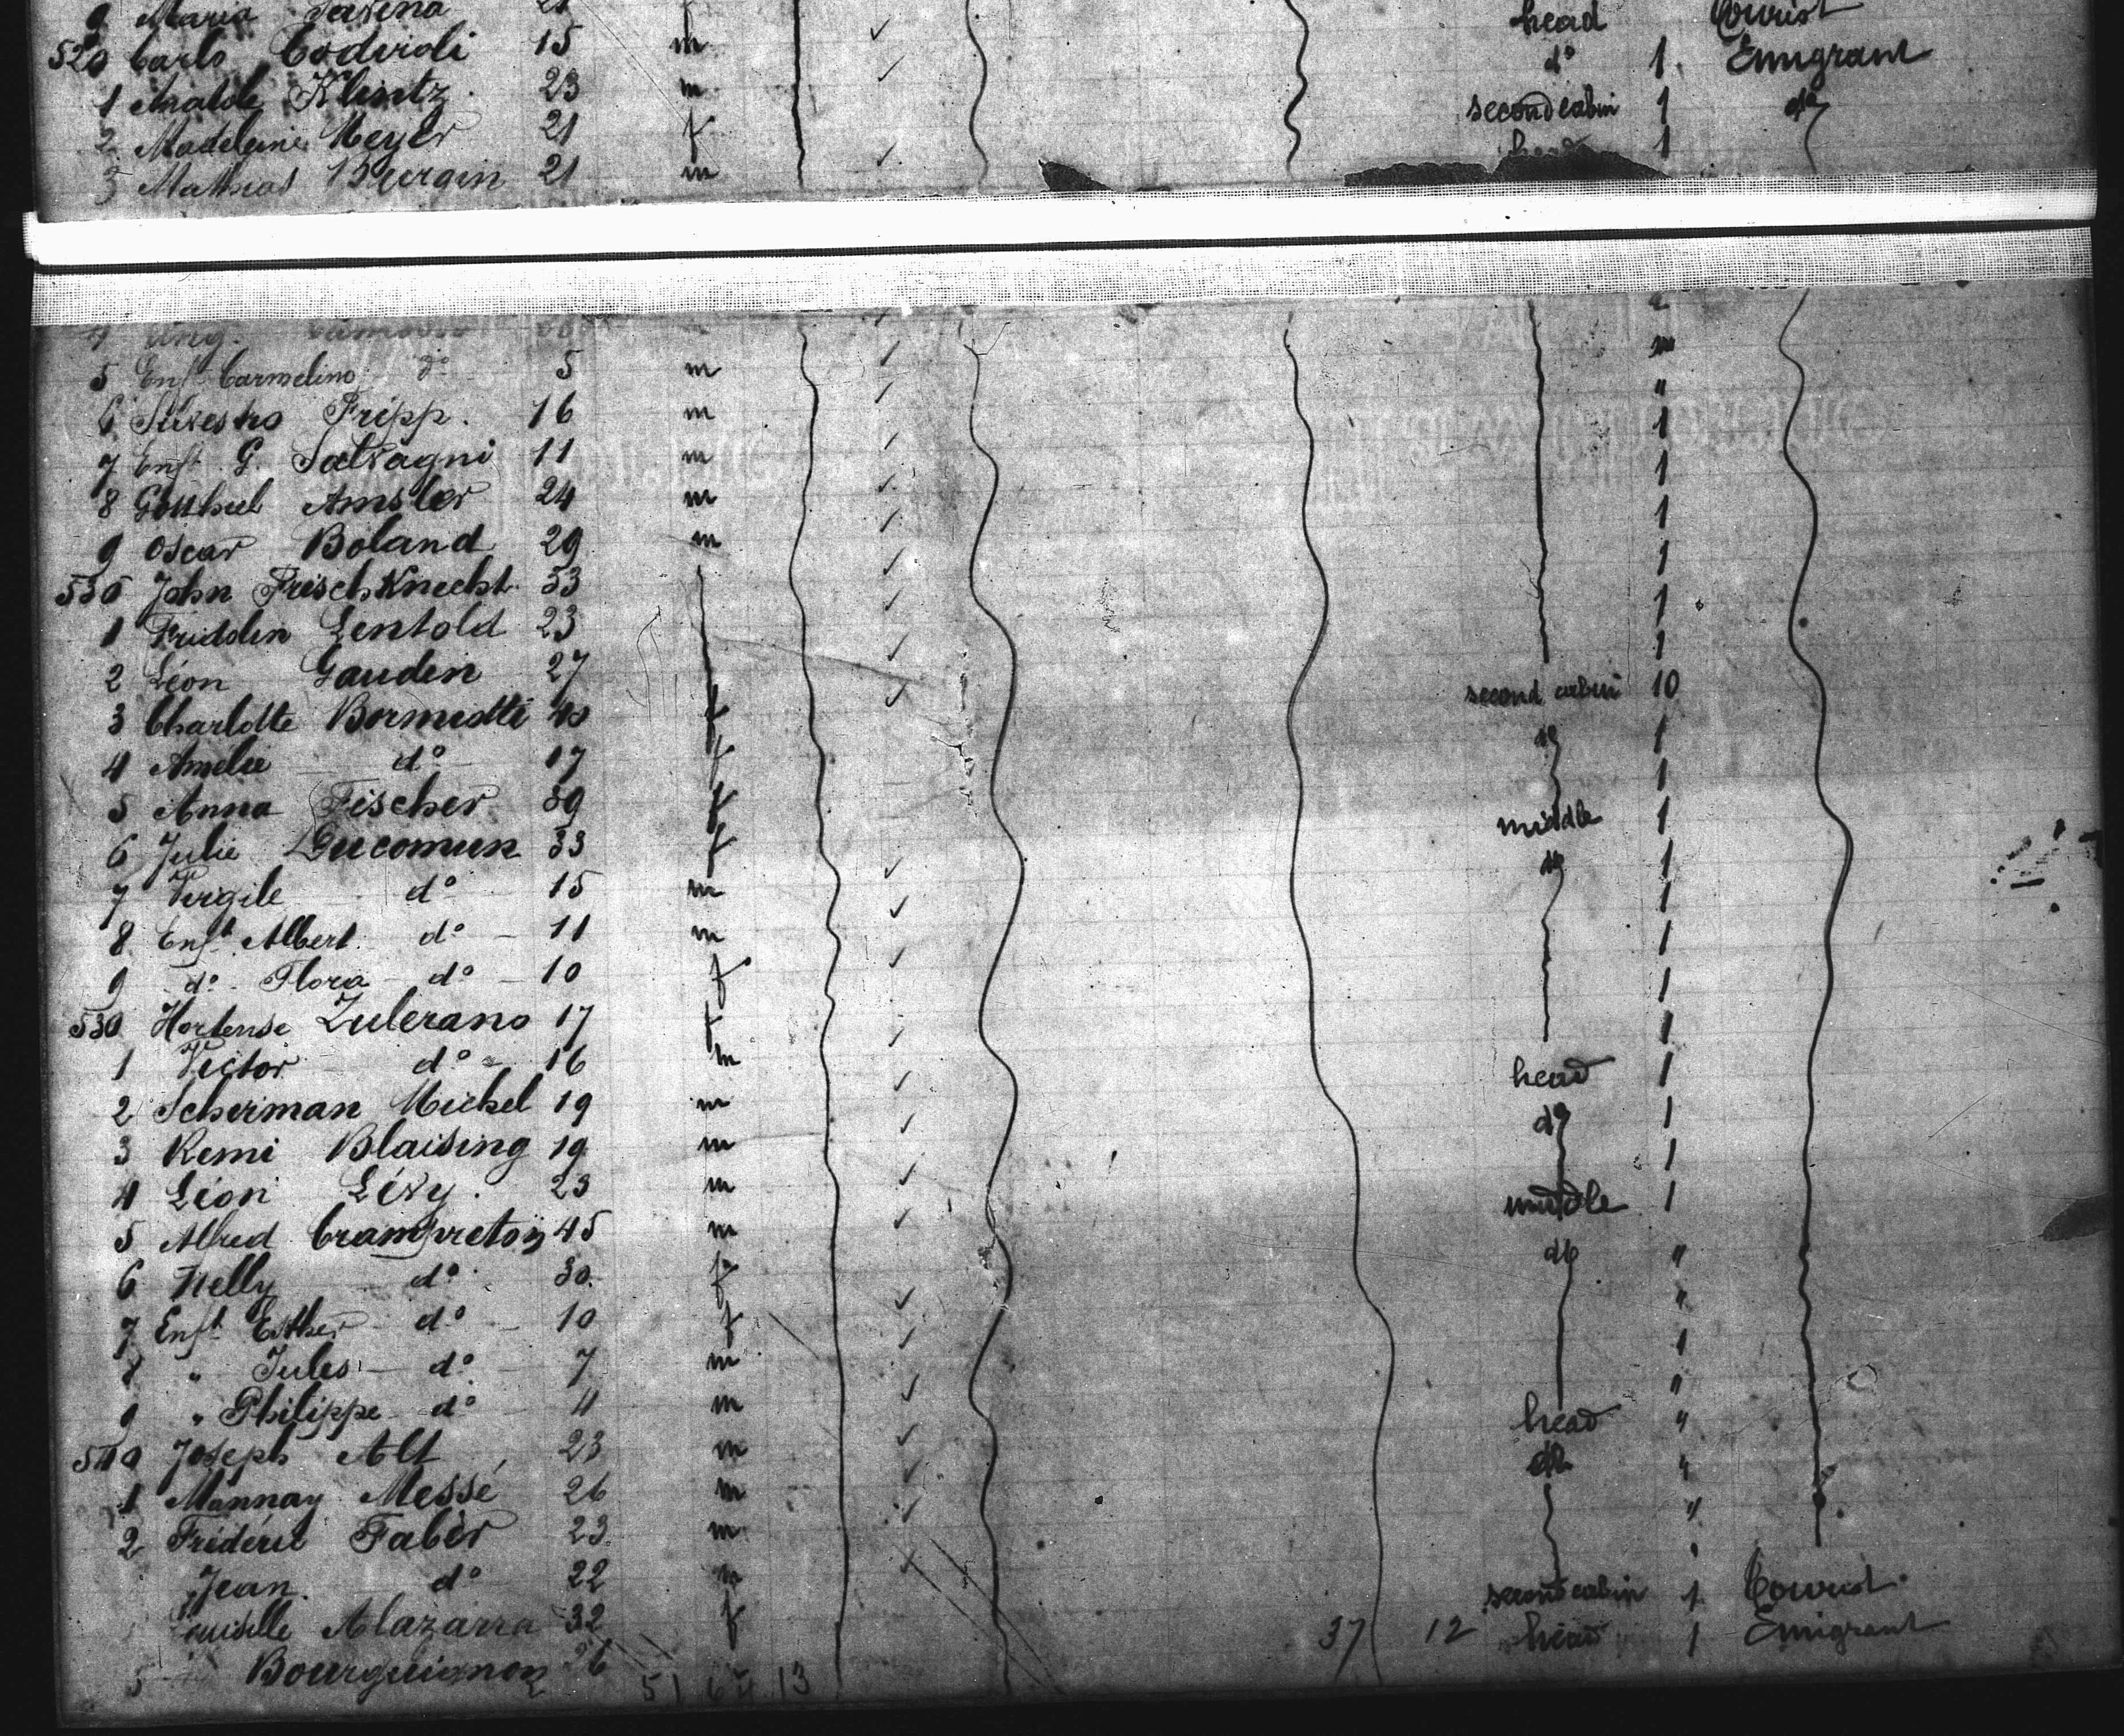 9 Maria head Tourist
520 Carlo Codiroli 15 m do 1 Emigrant
1 Klintz 23 m second cabin 1 do
2 Madeleine Meyer 21 f 1
3 Mathias Burgin 21 m
4
5 Enft Carmelino do 5 m
6 Silvestro Fripp. 16 m " 
7 Enft G. Salvagni 11 m 1
8 Amsler 24 m 1
9 Oscar Boland 29 m 1
530 John FrischKnecht 53 1
1 Fridolin Lentold 23 1
2 Léon Gaudin 27 1
3 Charlotte 40 f second cabin 10
4 Amelie do 17 f do 1
5 Anna Fischer 39 f 1
6 Julie Ducomun 33 f middle 1
7 Virgile do 15 m do 1
8 Enft Albert do 11 m 1
9 do Flora do 10 f 1
530 Hortense Zulerano 17 f 1
1 Victor do 16 m 1
2 Scherman Michel 19 m head 1
3 Remi Blaising 19 m do 1
4 Léon Lévy. 23 m 1
5 Alfred 45 m middle 1
6 Nelly do 30. f do "
7 Enft Esther do 10 f "
8 " Jules do 7 m 1
9 " Philippe do 4 m "
540 Joseph Alt 23 m head "
1 Mannay Messé 26 m do "
2 Fréderic Faber 23 m "
Jean do 22 m
Alazarra 32 f second cabin 1 Tourist
5 Bourguignon 26 37 12 head 1 Emigrant
51 13